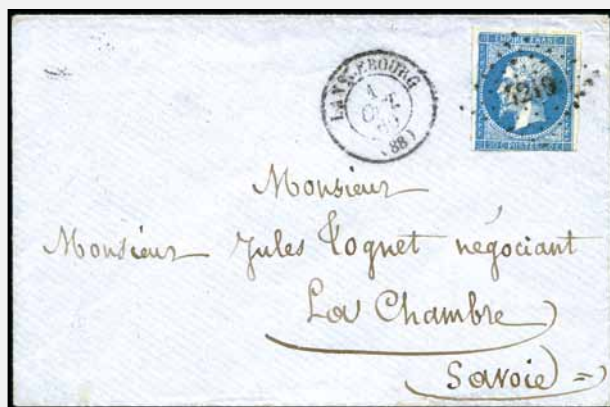 LANS-EBOURG
1
OCT
60
(88)
EMPIRE FRANC
4219
20 C POSTES 20 C
Monsieur
Monsieur Jules Cognet négociant
La Chambre
Savoie =